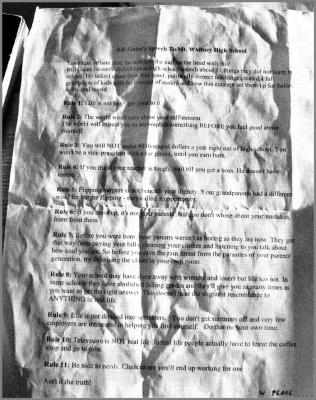 Bill Gates's Speech To Mt. Whitney High School
Love him or hate him, he sure hits the nail on the head with this!
school. He talked about how feel-good, politically correct teachings created a full
generation of kids with no concept of reality and how this concept set them up for failure
in the real world.
Rule 1: Life is not fair - get used to it.
Rule 2: The world won't care about your self-esteem.
The world will expect you to accomplish something BEFORE you feel good about
yourself.
Rule 3: You will NOT make 40 thousand dollars a year right out of high school. You
won't be a vice-president with a car phone, until you earn both.
Rule 4: If you think your teacher is tough, wait till you get a boss. He doesn't have
tenure.
Rule 5: Flipping burgers is not beneath your dignity. Your grandparents had a different
word for burger flipping - they called it opportunity.
Rule 6: If you mess up, it's not your parents' fault, so don't whine about your mistakes,
learn from them.
Rule 7: Before you were born, your parents weren't as boring as they are now. They got
that way from paying your bills, cleaning your clothes and listening to you talk about
how cool you are. So before you save the rain forest from the parasites of your parents'
generation, try delousing the closet in your own room.
Rule 8: Your school may have done away with winners and losers but life has not. In
some schools they have abolished failing grades and they'll give you as many times as
you want to get the right answer. This doesn't bear the slightest resemblance to
ANYTHING in real life.
Rule 9: Life is not divided into semesters. You don't get summers off and very few
employers are interested in helping you find yourself. Do that on your own time.
Rule 10: Television is NOT real life. In real life people actually have to leave the coffee
shop and go to jobs.
Rule 11: Be nice to nerds. Chances are you'll end up working for one
Ain't it the truth!